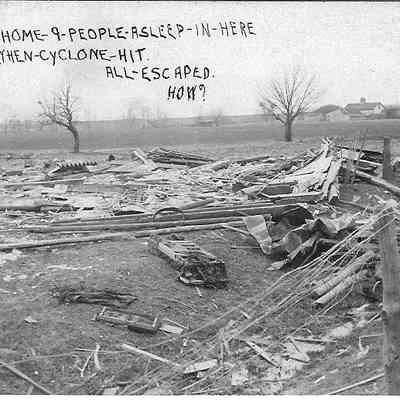 HOME-9-PEOPLE-ASLEEP-IN-HERE
WHEN-CYCLONE-HIT.
ALL-ESCAPED.
HOW?